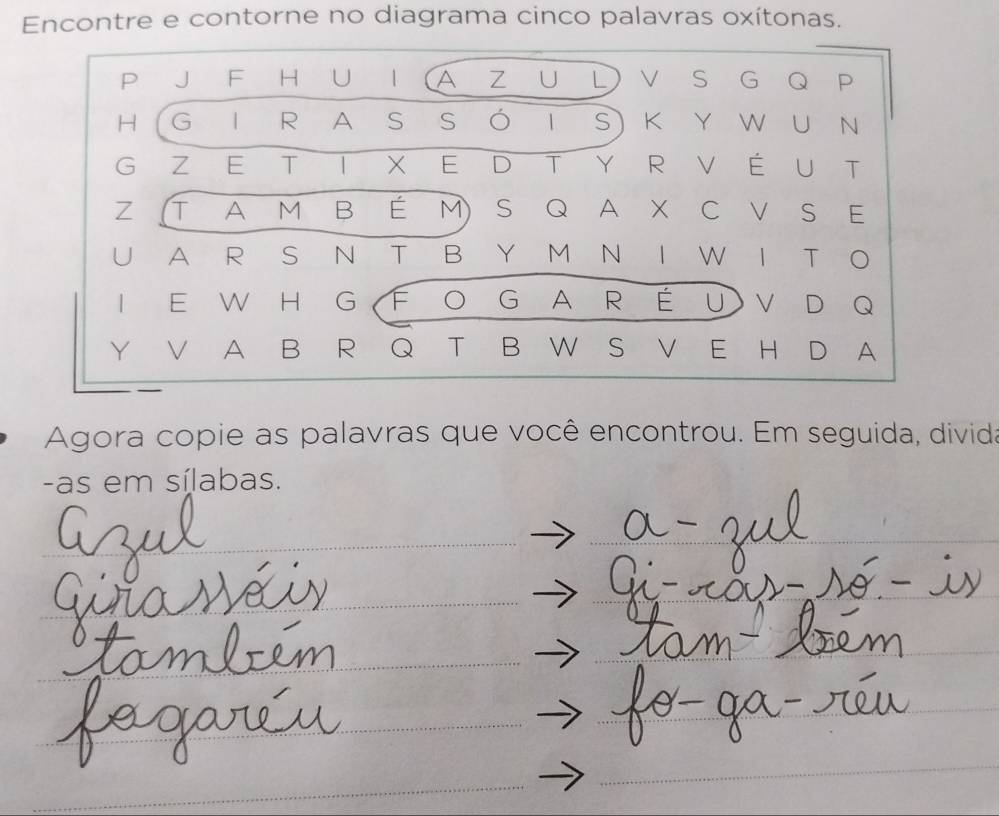 Encontre e contorne no diagrama cinco palavras oxítonas.
P J F H U I A Z U L V S G Q P
H G I R A S S Ó I S K Y W U N
G Z E T I X E D T Y R V É U T
Z T A M B É M S Q A X C V S E
U A R S N T B Y M N I W I T O
I E W H G F O G A R É U V D Q
Y V A B R Q T B W S V E H D A
Agora copie as palavras que você encontrou. Em seguida, divida
-as em sílabas.
azul → a-zul
Girassóis → Gi-ras-só-is
também → tam-bém
fogaréu → fo-ga-réu
→